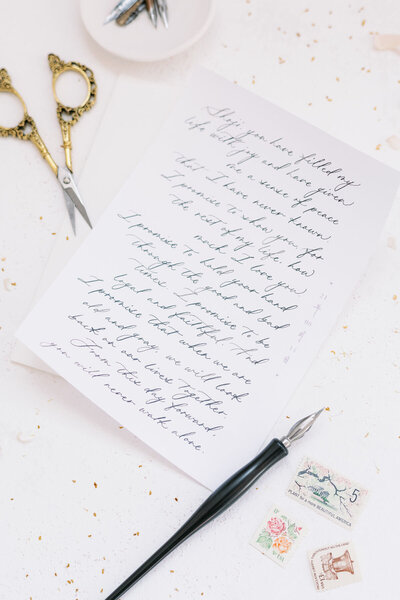 you have filled my
life with joy and have given
me a sense of peace
that I have never known
I promise to show you for
the rest of my life how
much I love you
I promise to hold your hand
through the good and bad
times. I promise to be
loyal and faithful. And
I promise that when we are
old and gray, we will look
back on our lives together.
From this day forward,
you will never walk alone.
5
PLANT for a more BEAUTIFUL AMERICA